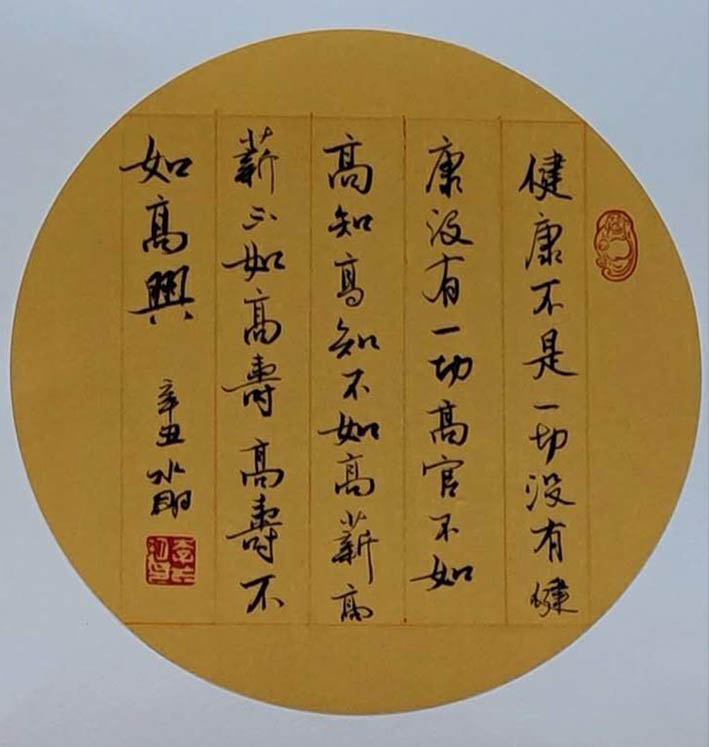 健康不是一切没有健
康没有一切高官不如
高知高知不如高薪高
薪不如高壽高壽不
如高興
辛丑